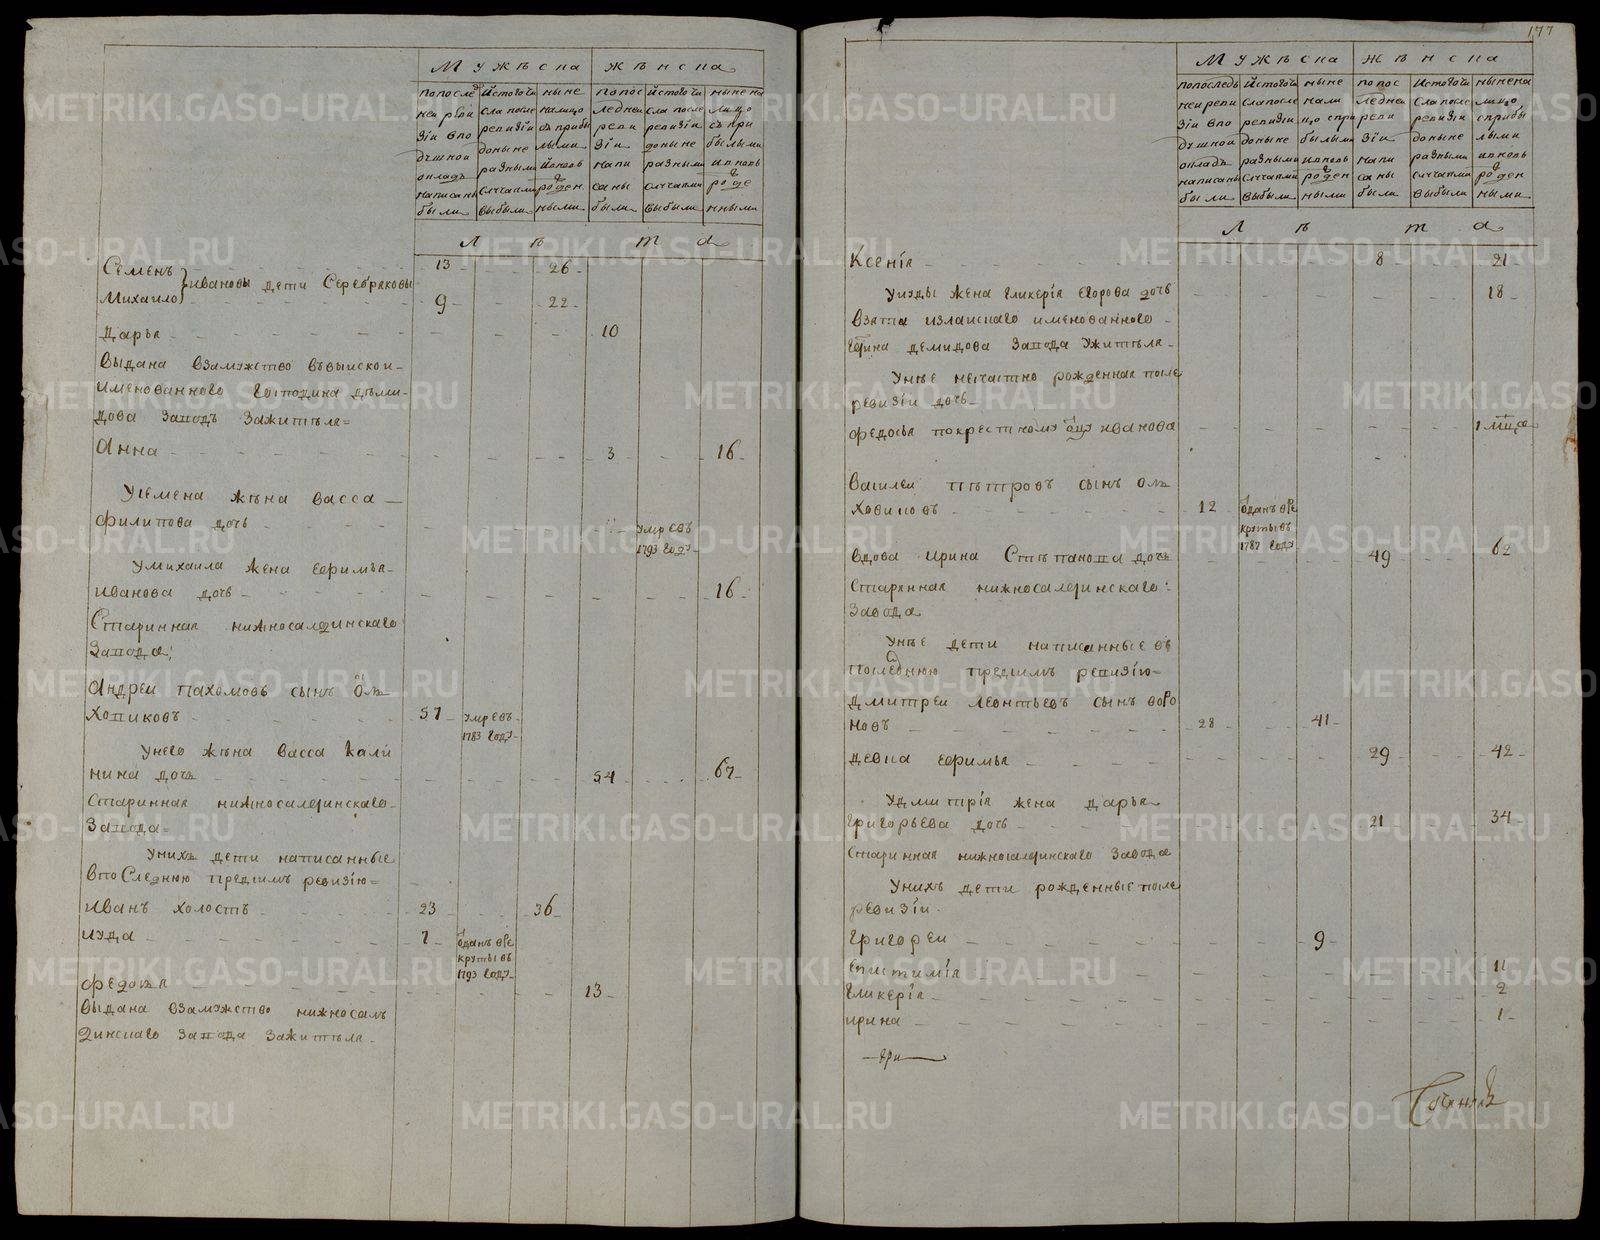 Мужѣска
жѣнска
попоследней ревизіи вподушной окладъ написаны были
Исtого числа после ревизіи доныне разными случаями выбыли
ныне налицо съ прибылыми и вновь рожденными
попоследней ревизіи написаны были
Истого числа после ревизіи доныне разными случаями выбыли
ныне налицо съ прибылыми и вновь рожденными
Л ѣ т а
Семенъ 13 26
Михайло 9 22
ивановы дети Серебряковы
Дарья 10
выдана взамужство
именованного Господина Деми-
дова заводъ зажителя=
Анна 3 16
Усемена жѣна васса
филипова дочь умре въ
1793 Году
Умихаила жена ефимья
иванова дочь 16
Старинная нижносалдинскаго
завода;
Андреи пахомовъ сынъ Ом
ховиковъ 57 умре въ
1783 Году
Унего жѣна васса Кали
нина дочь 54 67
Старинная нижносалдинскаго
завода=
Унихъ дети написанные
впоследнюю предсимъ ревизію=
иванъ холостъ 23 36
иуда 7 Отданъ вре
круты въ
1793 Году
федосья 13
выдана взамужство нижносал
динскаго завода зажителя
177
Мужѣска
жѣнска
попоследней ревизіи вподушной окладъ написаны были
Истого числа после ревизіи доныне разными случаями выбыли
ныне налицо сприбылыми и вновь рожденными
попоследней ревизіи написаны были
Истого числа после ревизіи доныне разными случаями выбыли
ныне налицо сприбылыми и вновь рожденными
Л ѣ т а
Ксенія 8 21
Уиуды жена гликерія егорова дочь 18
взята излайскаго именованного
Гдина демидова завода Ужителя
Унѣе нещастно рожденная после
ревизіи дочь
федосья покрестному отцу иванова 1 мца
василеи пѣтровъ сынъ Ом
ховиковъ 12 Отданъ вре
круты въ
1787 Году
вдова ирина Стѣпанова дочь 49 62
Старинная нижносалдинскаго
завода
Унѣе дети написанные въ
последнюю предсимъ ревизію=
дмитреи леонтьевъ сынъ воро
новъ 28 41
девка ефимья 29 42
Удмитрія жена дарья
григорьева дочь 21 34
Старинная нижносалдинскаго завода
Унихъ дети рожденные после
ревизіи
григореи 9
епистимія 11
гликерія 2
ирина 1